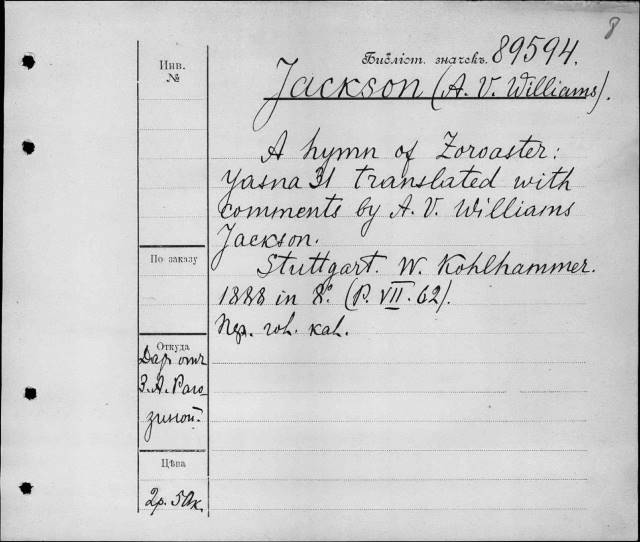 8
Библіот. значекъ. 89594.
Инв.
№
Jackson (A. V. Williams).
A hymn of Zoroaster:
Yasna 31 translated with
comments by A. V. Williams
Jackson.
По заказу
Stuttgart. W. Kohlhammer.
1888 in 8°. (P. VII. 62).
Откуда
Даръ отъ
З. А. Раго-
зиной.
Цѣна
2р. 50к.